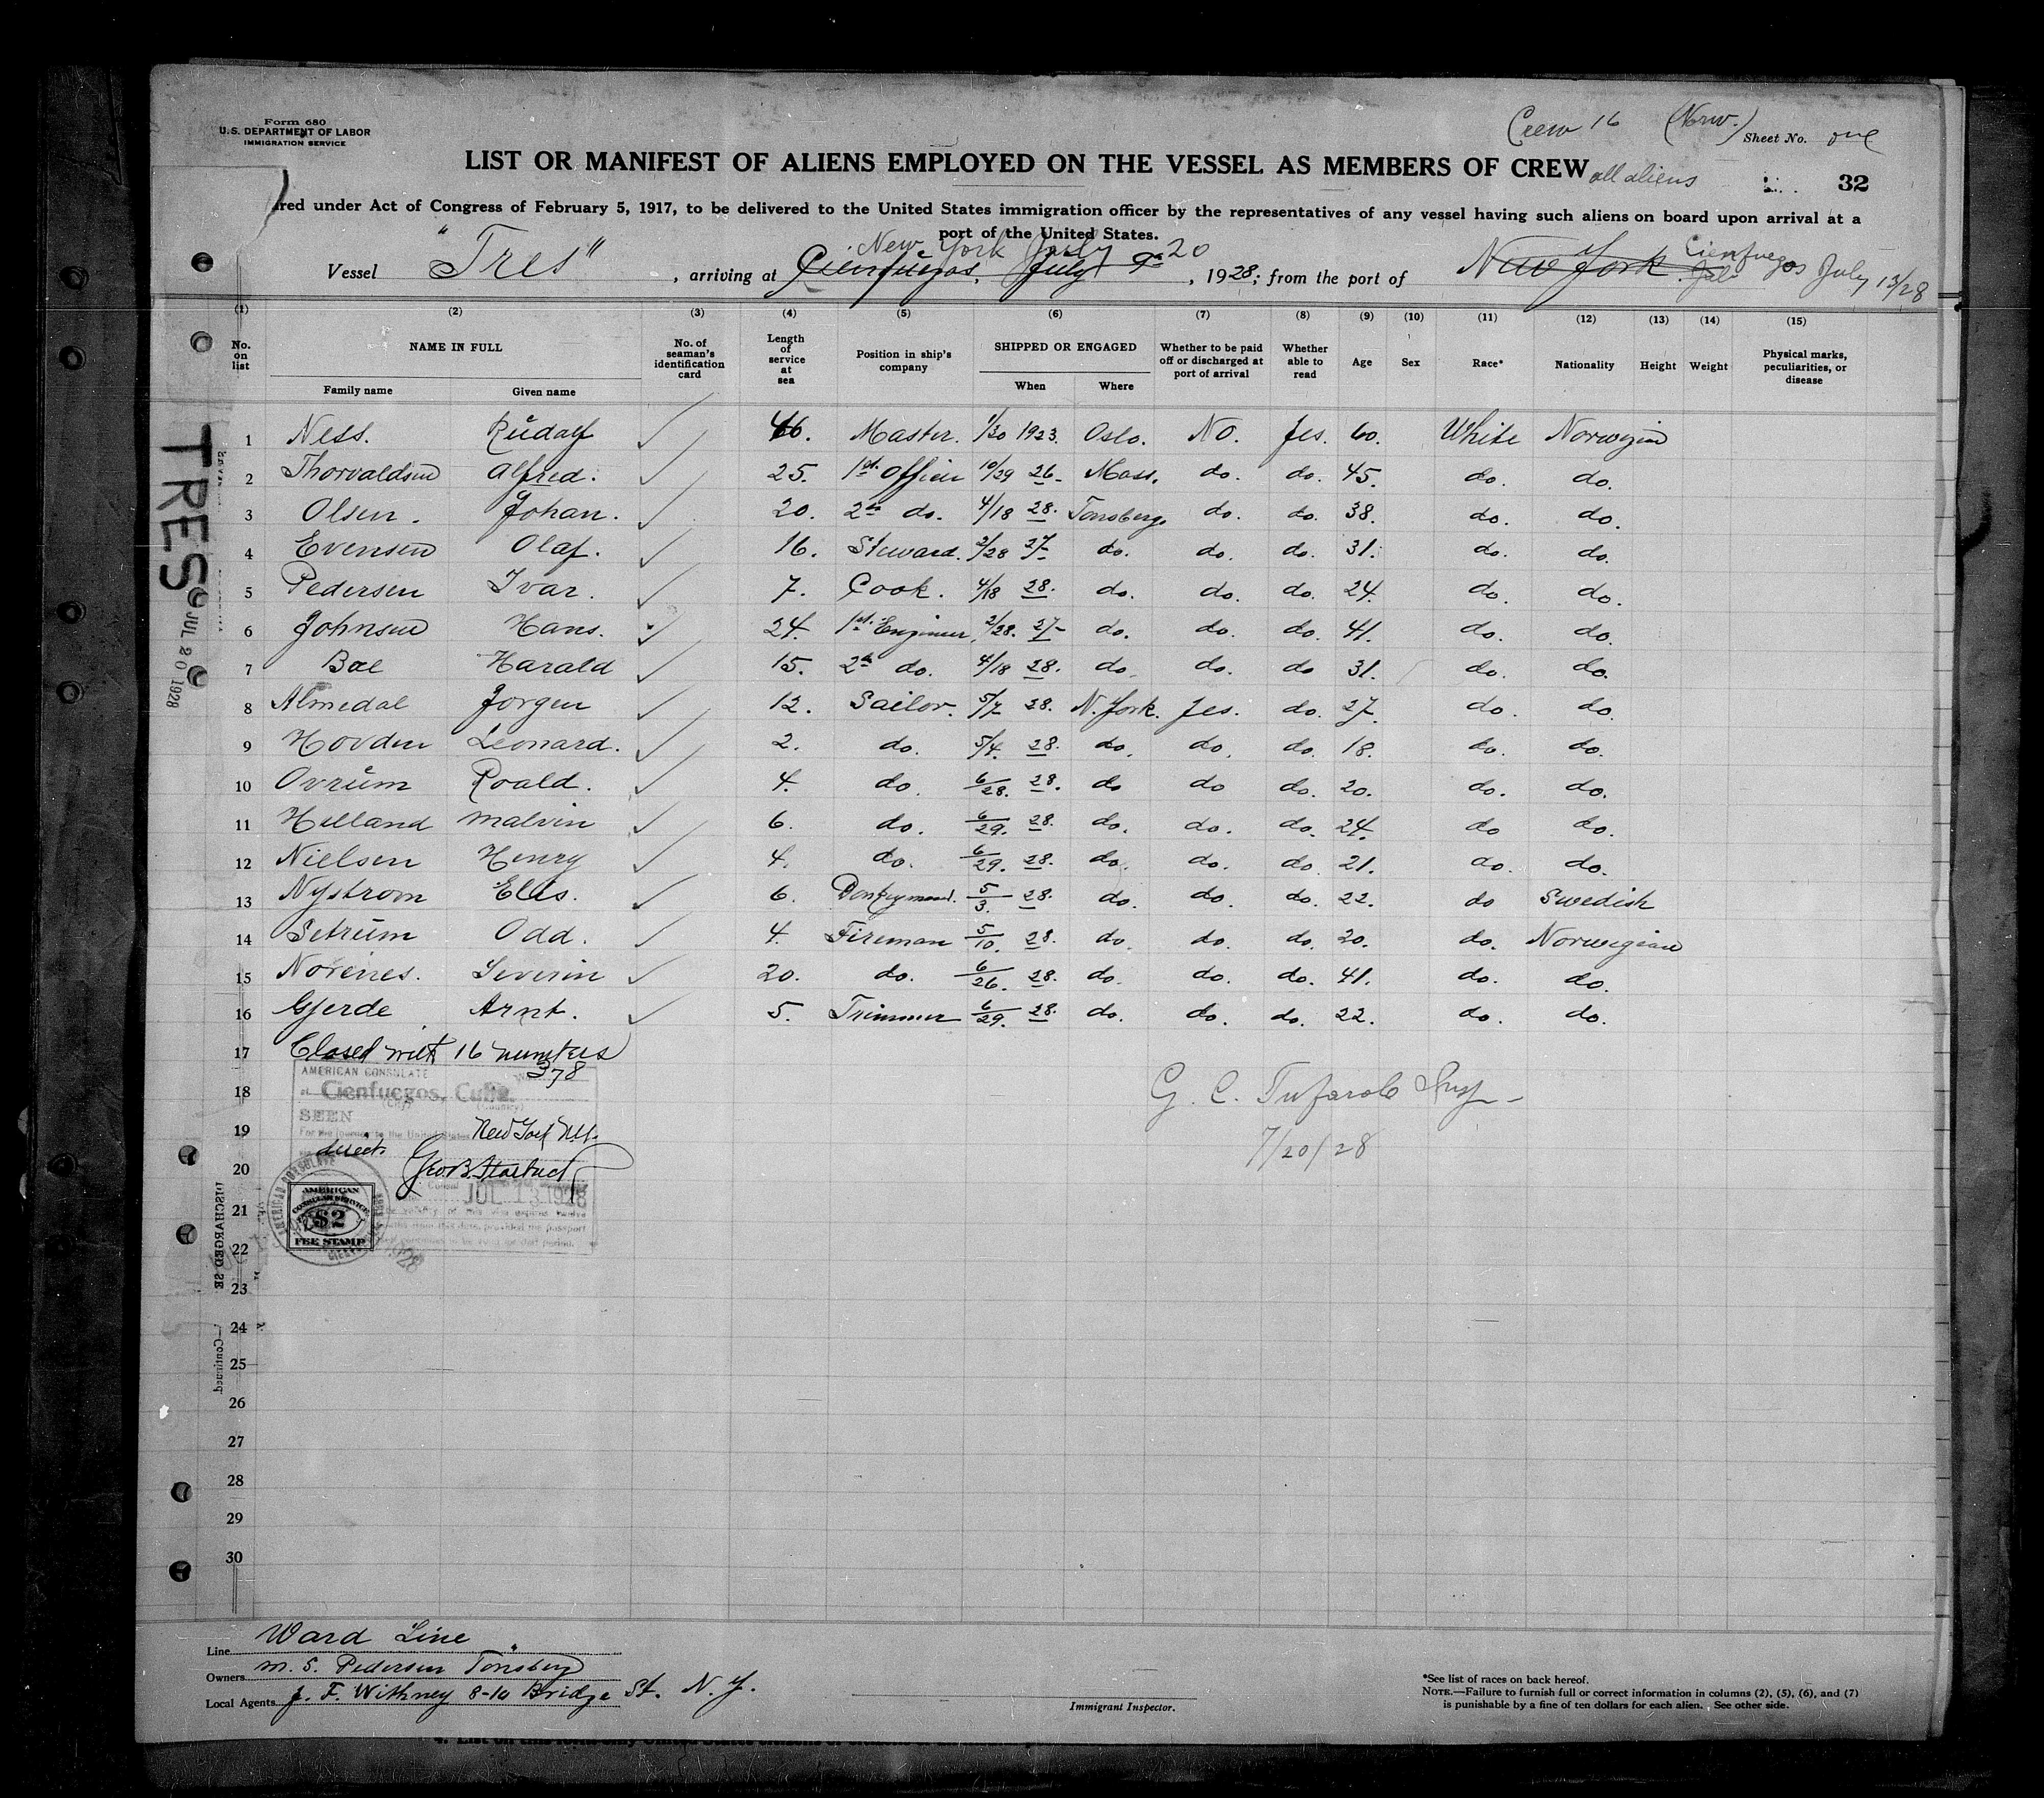 Form 680
U.S. DEPARTMENT OF LABOR
IMMIGRATION SERVICE
Crew 16 (Norw.) Sheet No. one
LIST OR MANIFEST OF ALIENS EMPLOYED ON THE VESSEL AS MEMBERS OF CREW all aliens 32
ired under Act of Congress of February 5, 1917, to be delivered to the United States immigration officer by the representatives of any vessel having such aliens on board upon arrival at a
port of the United States.
New York July 20
Vessel "Tres", arriving at Cienfuegos, July 9th, 1928; from the port of New York Cienfuegos July 13/28
(1) (2) (3) (4) (5) (6) (7) (8) (9) (10) (11) (12) (13) (14) (15)
No. on list NAME IN FULL Family name Given name No. of seaman's identification card Length of service at sea Position in ship's company SHIPPED OR ENGAGED When Where Whether to be paid off or discharged at port of arrival Whether able to read Age Sex Race* Nationality Height Weight Physical marks, peculiarities, or disease
1 Ness. Rudolf 46. Master. 1/30 1923. Oslo. NO. Yes. 60. White Norwegian
2 Thorvaldsen Alfred. 25. 1st Officer 10/29 26 Moss. do. do. 45. do. do.
3 Olsen. Johan. 20. 2nd do. 4/18 28. Tonsberg. do. do. 38. do. do.
4 Evensen Olaf. 16. Steward. 2/28 27 do. do. do. 31. do. do.
5 Pedersen Ivar. 7. Cook. 4/18 28. do. do. do. 24. do. do.
6 Johnsen Hans. 24. 1st Engineer. 2/28. 27 do. do. do. 41. do. do.
7 Boe Harald 15. 2nd do. 4/18 28. do. do. do 31. do. do.
8 Almedal Jorgen 12. Sailor. 5/7 28. N. York. Yes. do. 27. do. do.
9 Hovden Leonard. 2. do. 5/4. 28. do. do. do. 18. do. do.
10 Ovrum Roald. 4. do. 6/28. 28. do do do. 20. do. do.
11 Helland Malvin 6. do. 6/29. 28. do. do. do. 24. do do.
12 Nielsen Henry 4. do. 6/29. 28. do. do. do. 21. do. do.
13 Nystrom Elis. 6. Donkeyman. 5/3. 28. do. do. do. 22. do Swedish
14 Setrum Odd. 4. Fireman 5/10. 28. do. do. do. 20. do. Norwegian
15 Severin 20. do. 6/26. 28. do. do. do. 41. do. do.
16 Gjerde Arnt. 5. Trimmer 6/29. 28. do. do. do. 22. do. do.
17 Closed with 16 numbers
378
AMERICAN CONSULATE
18 at Cienfuegos, Cuba.
(City) (Country)
SEEN
19 For the journey to the United States New York N.Y.
direct
20 Geo B. Starbuck
JUL 13 1928
21
22
23
24
25
26
27
28
29
30
AMERICAN CONSULAR SERVICE
$2
FEE STAMP
G. C. Tufarolo Insp
7/20/28
TRES
JUL 20 1928
DISCHARGED SE
—Continued
Line Ward Line
Owners M. S. Pedersen Tönsberg
Local Agents J. F. Withney 8-10 Bridge St. N. Y.
Immigrant Inspector.
*See list of races on back hereof.
NOTE.—Failure to furnish full or correct information in columns (2), (5), (6), and (7)
is punishable by a fine of ten dollars for each alien. See other side.